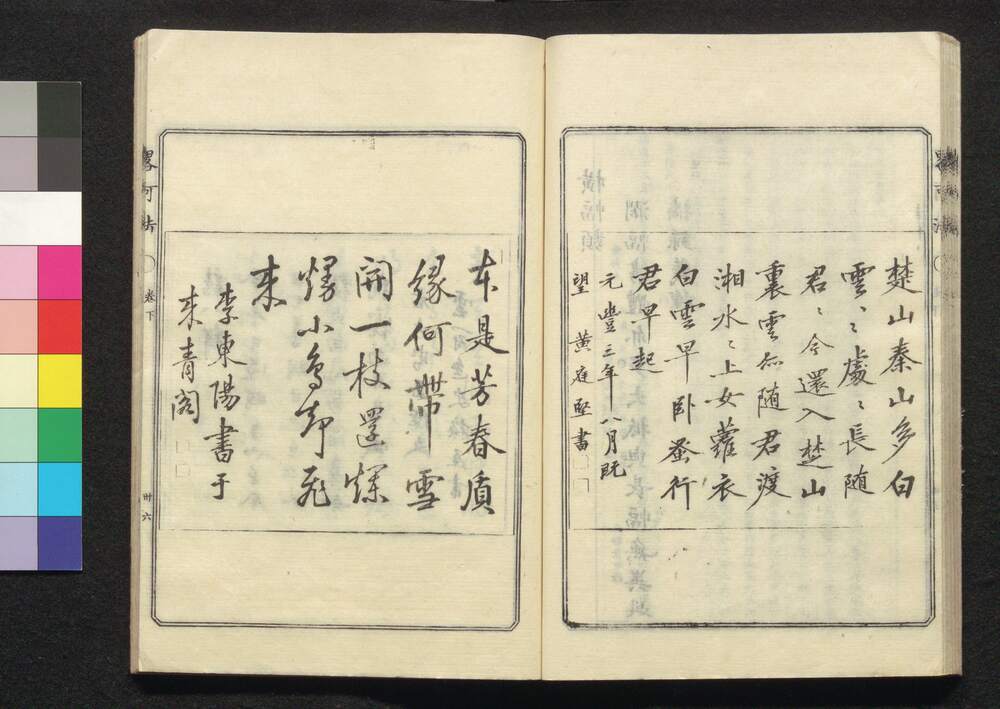 楚山秦山多白
雲〻處〻長随
君〻今還入楚山
裏雲亦随君渡
湘水〻上女蘿衣
白雲早卧蚤行
君早起
元豊三年八月既
望 黄庭堅書
本是芳春質
緣何帶雪
開一枝還
小鳥却飛
来
李東陽書于
来青閣
卷下
卅六